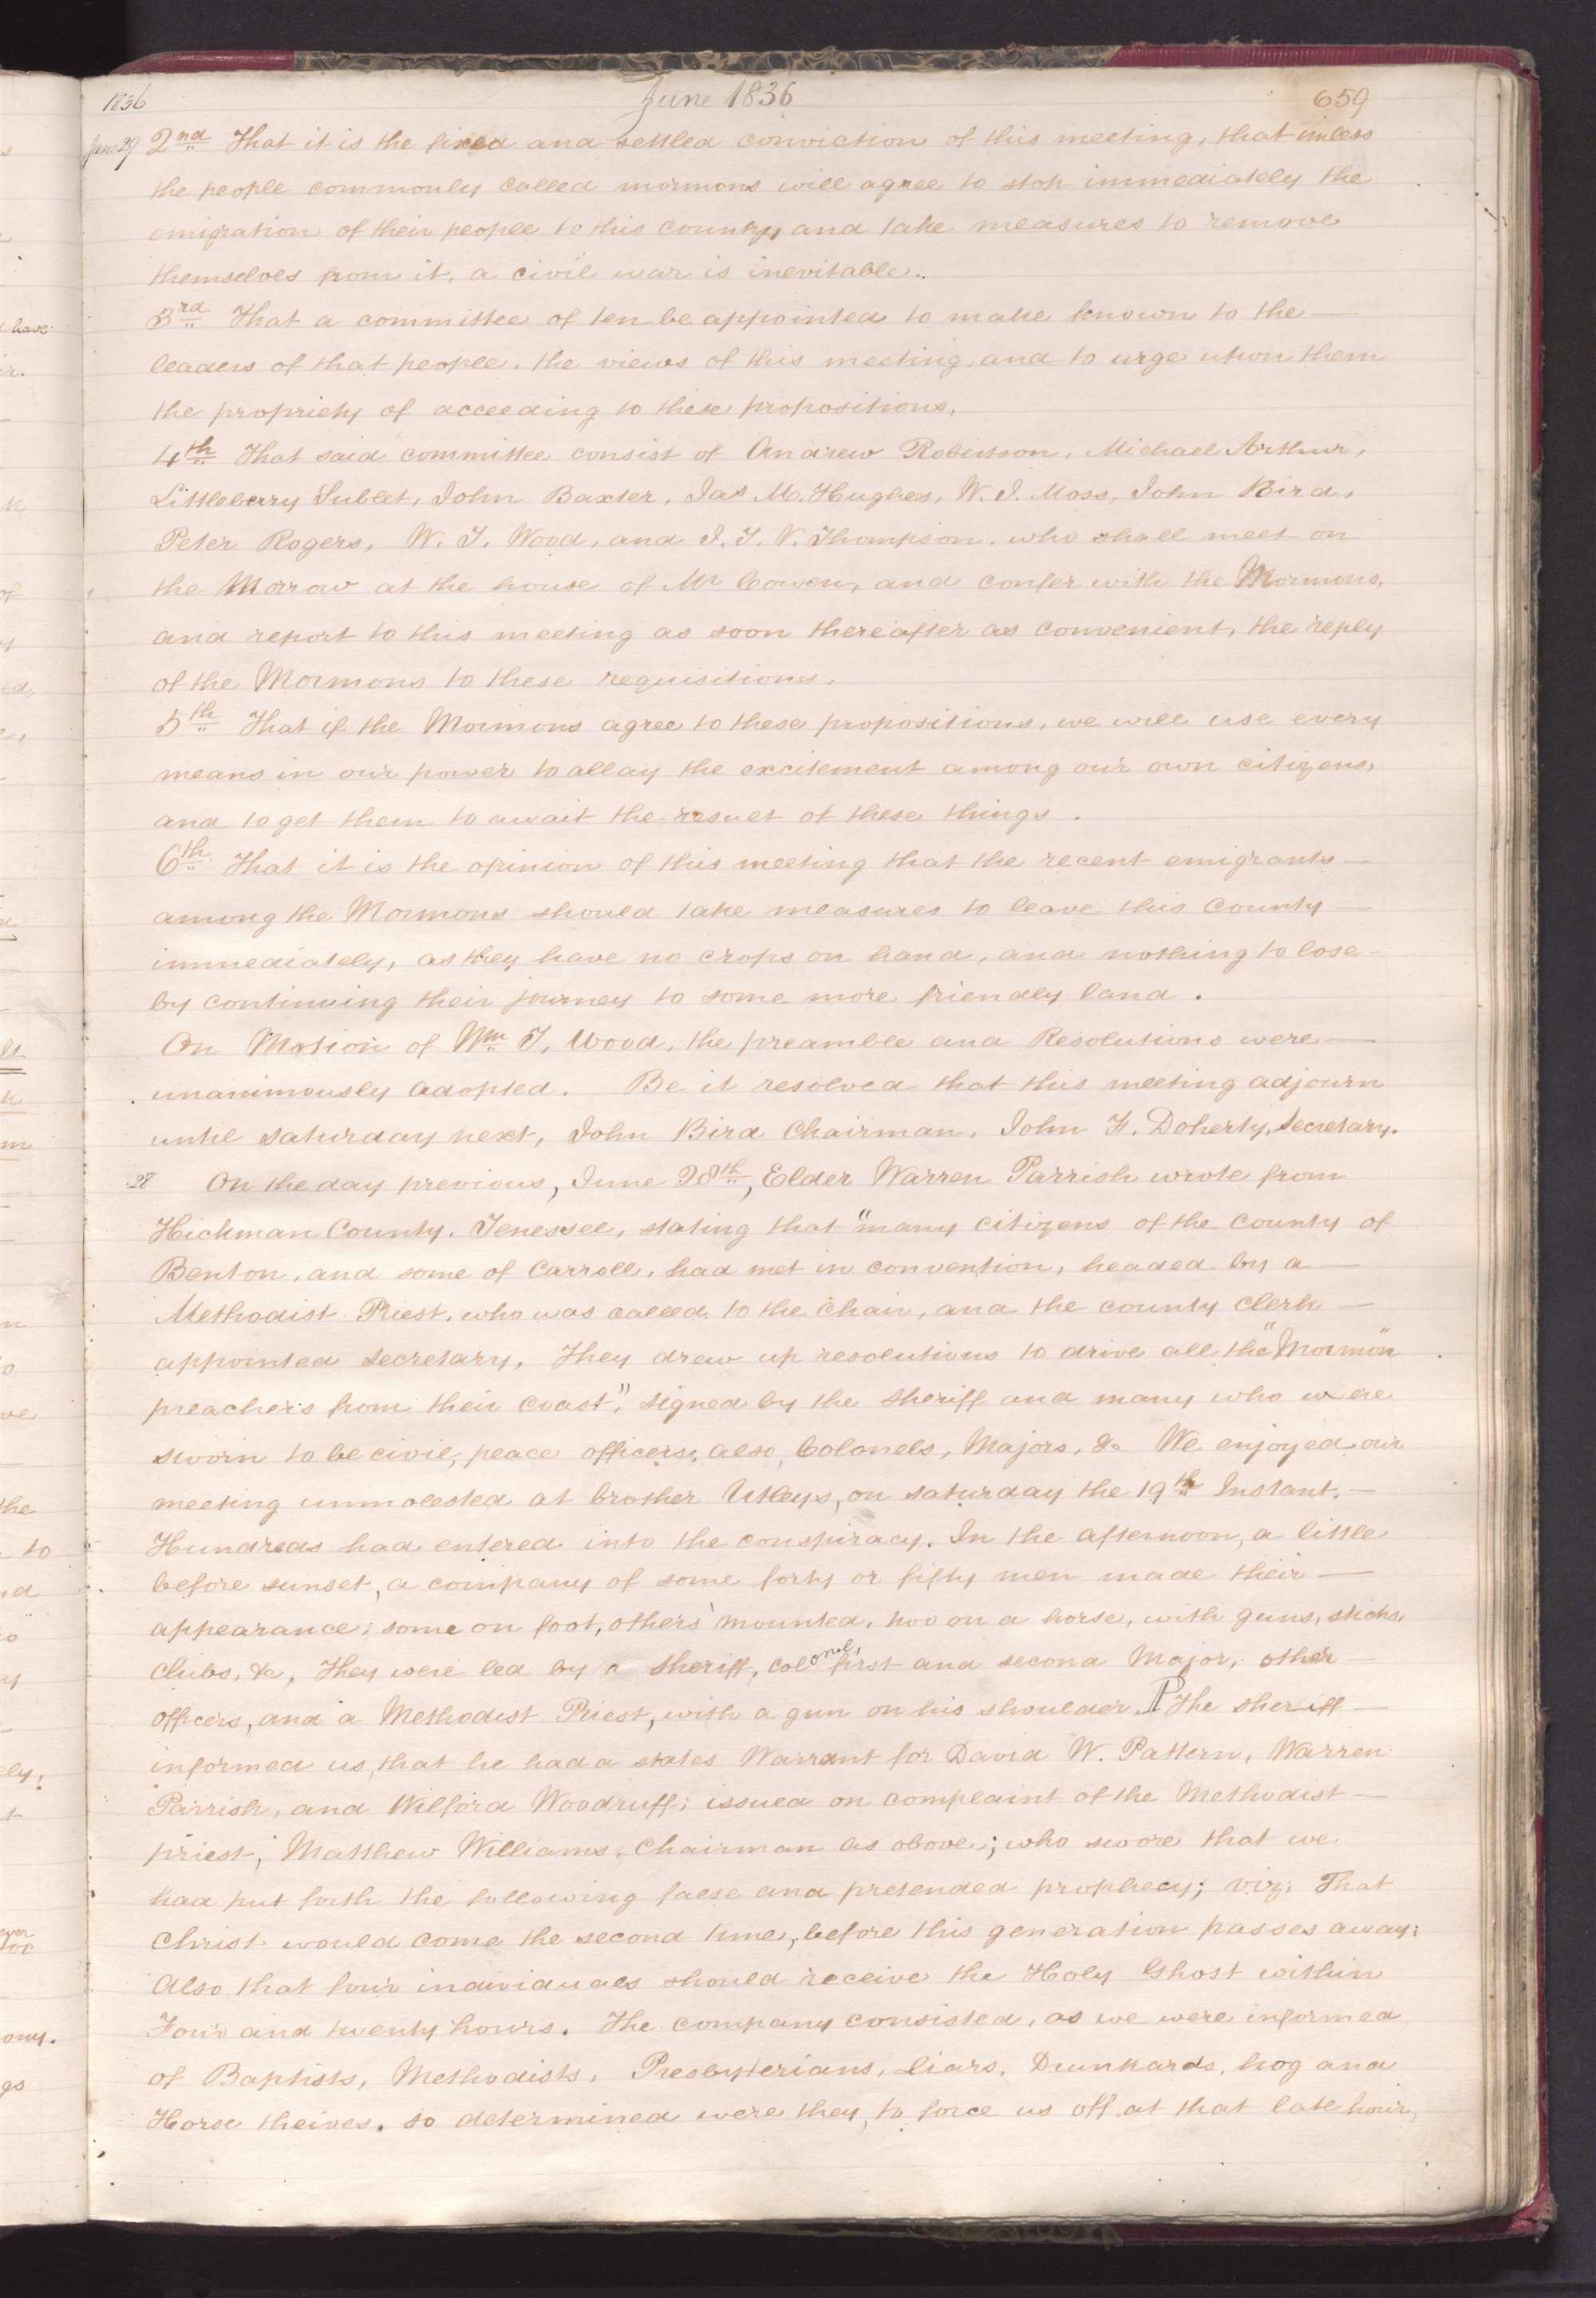 1836 June 1836 659
June 29 2nd That it is the fixed and settled conviction of this meeting, that unless
the people commonly called mormons will agree to stop immediately the
emigration of their people to this county, and take measures to remove
themselves from it, a civil war is inevitable..
3rd That a committee of ten be appointed to make known to the —
leaders of that people, the views of this meeting, and to urge upon them
the propriety of acceeding to these propositions,
4th That said committee consist of Andrew Robertson, Michael Arthur,
Littleberry Sublet, John Baxter, Jas M. Hughes, W. J. Moss, John Bird,
Peter Rogers, W. T. Wood, and J. T. V. Thompson, who shall meet on
the Morrow at the house of Mr Cowen, and confer with the Mormons,
and report to this meeting as soon thereafter as convenient, the reply
of the Mormons to these requisitions.
5th That if the Mormons agree to these propositions, we will use every
means in our power to allay the excitement among our own citizens,
and to get them to await the result of these things.
6th That it is the opinion of this meeting that the recent emigrants —
among the Mormons should take measures to leave this County —
immediately, as they have no crops on hand, and nothing to lose —
by continuing their journey to some more friendly land.
On Motion of Wm T. Wood, the preamble and Resolutions were —
unanimously adopted. Be it resolved that this meeting adjourn
until saturday next, John Bird Chairman. John F. Doherty, Secretary.
28 On the day previous, June 28th, Elder Warren Parrish wrote from
Hickman County, Tenessee, stating that "many citizens of the county of
Benton, and some of Carroll, had met in convention, headed by a —
Methodist Priest, who was called to the Chair, and the county Clerk —
appointed secretary, They drew up resolutions to drive all the "Mormon"
preachers from their coast", signed by the sheriff and many who were
sworn to be civil, peace officers, also, Colonels, Majors, &c We enjoyed our
meeting unmolested at brother Utleys, on saturday the 19th Instant. —
Hundreds had entered into the conspiracy. In the afternoon, a little
before sunset, a company of some forty or fifty men made their —
appearance; some on foot, others mounted, two on a horse, with guns, sticks,
clubs, &c, They were led by a sheriff, colonel, first and second Major, other —
officers, and a Methodist Priest, with a gun on his shoulder. ¶ The sheriff —
informed us, that he had a states Warrant for David W. Pattern, Warren
Parrish, and Wilford Woodruff; issued on complaint of the Methodist —
priest, Matthew Williams, Chairman as above; who swore that we
had put forth the following false and pretended prophecy; viz; That
Christ would come the second time, before this generation passes away;
Also, that four individuals should receive the Holy Ghost within
Four and twenty hours. The company consisted, as we were informed
of Baptists, Methodists, Presbyterians, liars, Drunkards, hog and
Horse theives. so determined were they, to force us off at that late hour,